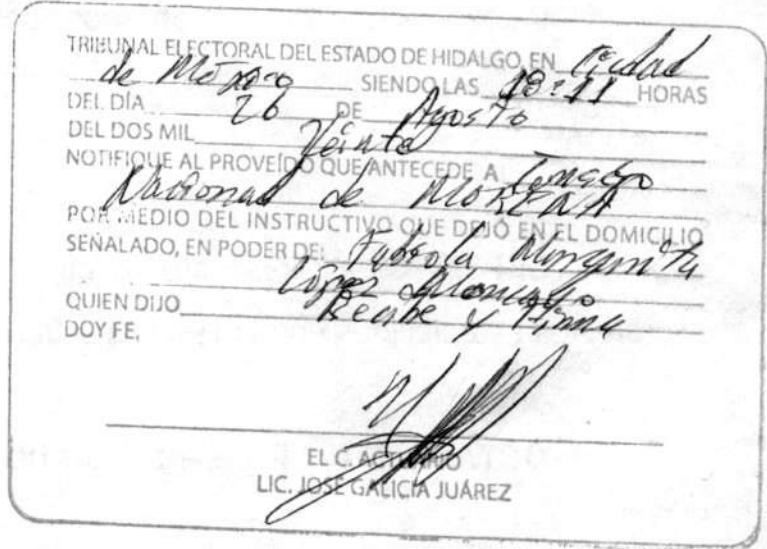 TRIBUNAL ELECTORAL DEL ESTADO DE HIDALGO, EN Ciudad
de México SIENDO LAS HORAS
DEL DÍA 26 DE Agosto
DEL DOS MIL Veinte
NOTIFIQUE AL PROVEÍDO QUE ANTECEDE A Consejo
Nacional de MORENA
POR MEDIO DEL INSTRUCTIVO QUE DEJÓ EN EL DOMICILIO
SEÑALADO, EN PODER DE: Fabiola Margarita
López Moncayo
QUIEN DIJO Recibe y Firma
DOY FE,
EL C. ACTUARIO
LIC. JOSÉ GALICIA JUÁREZ